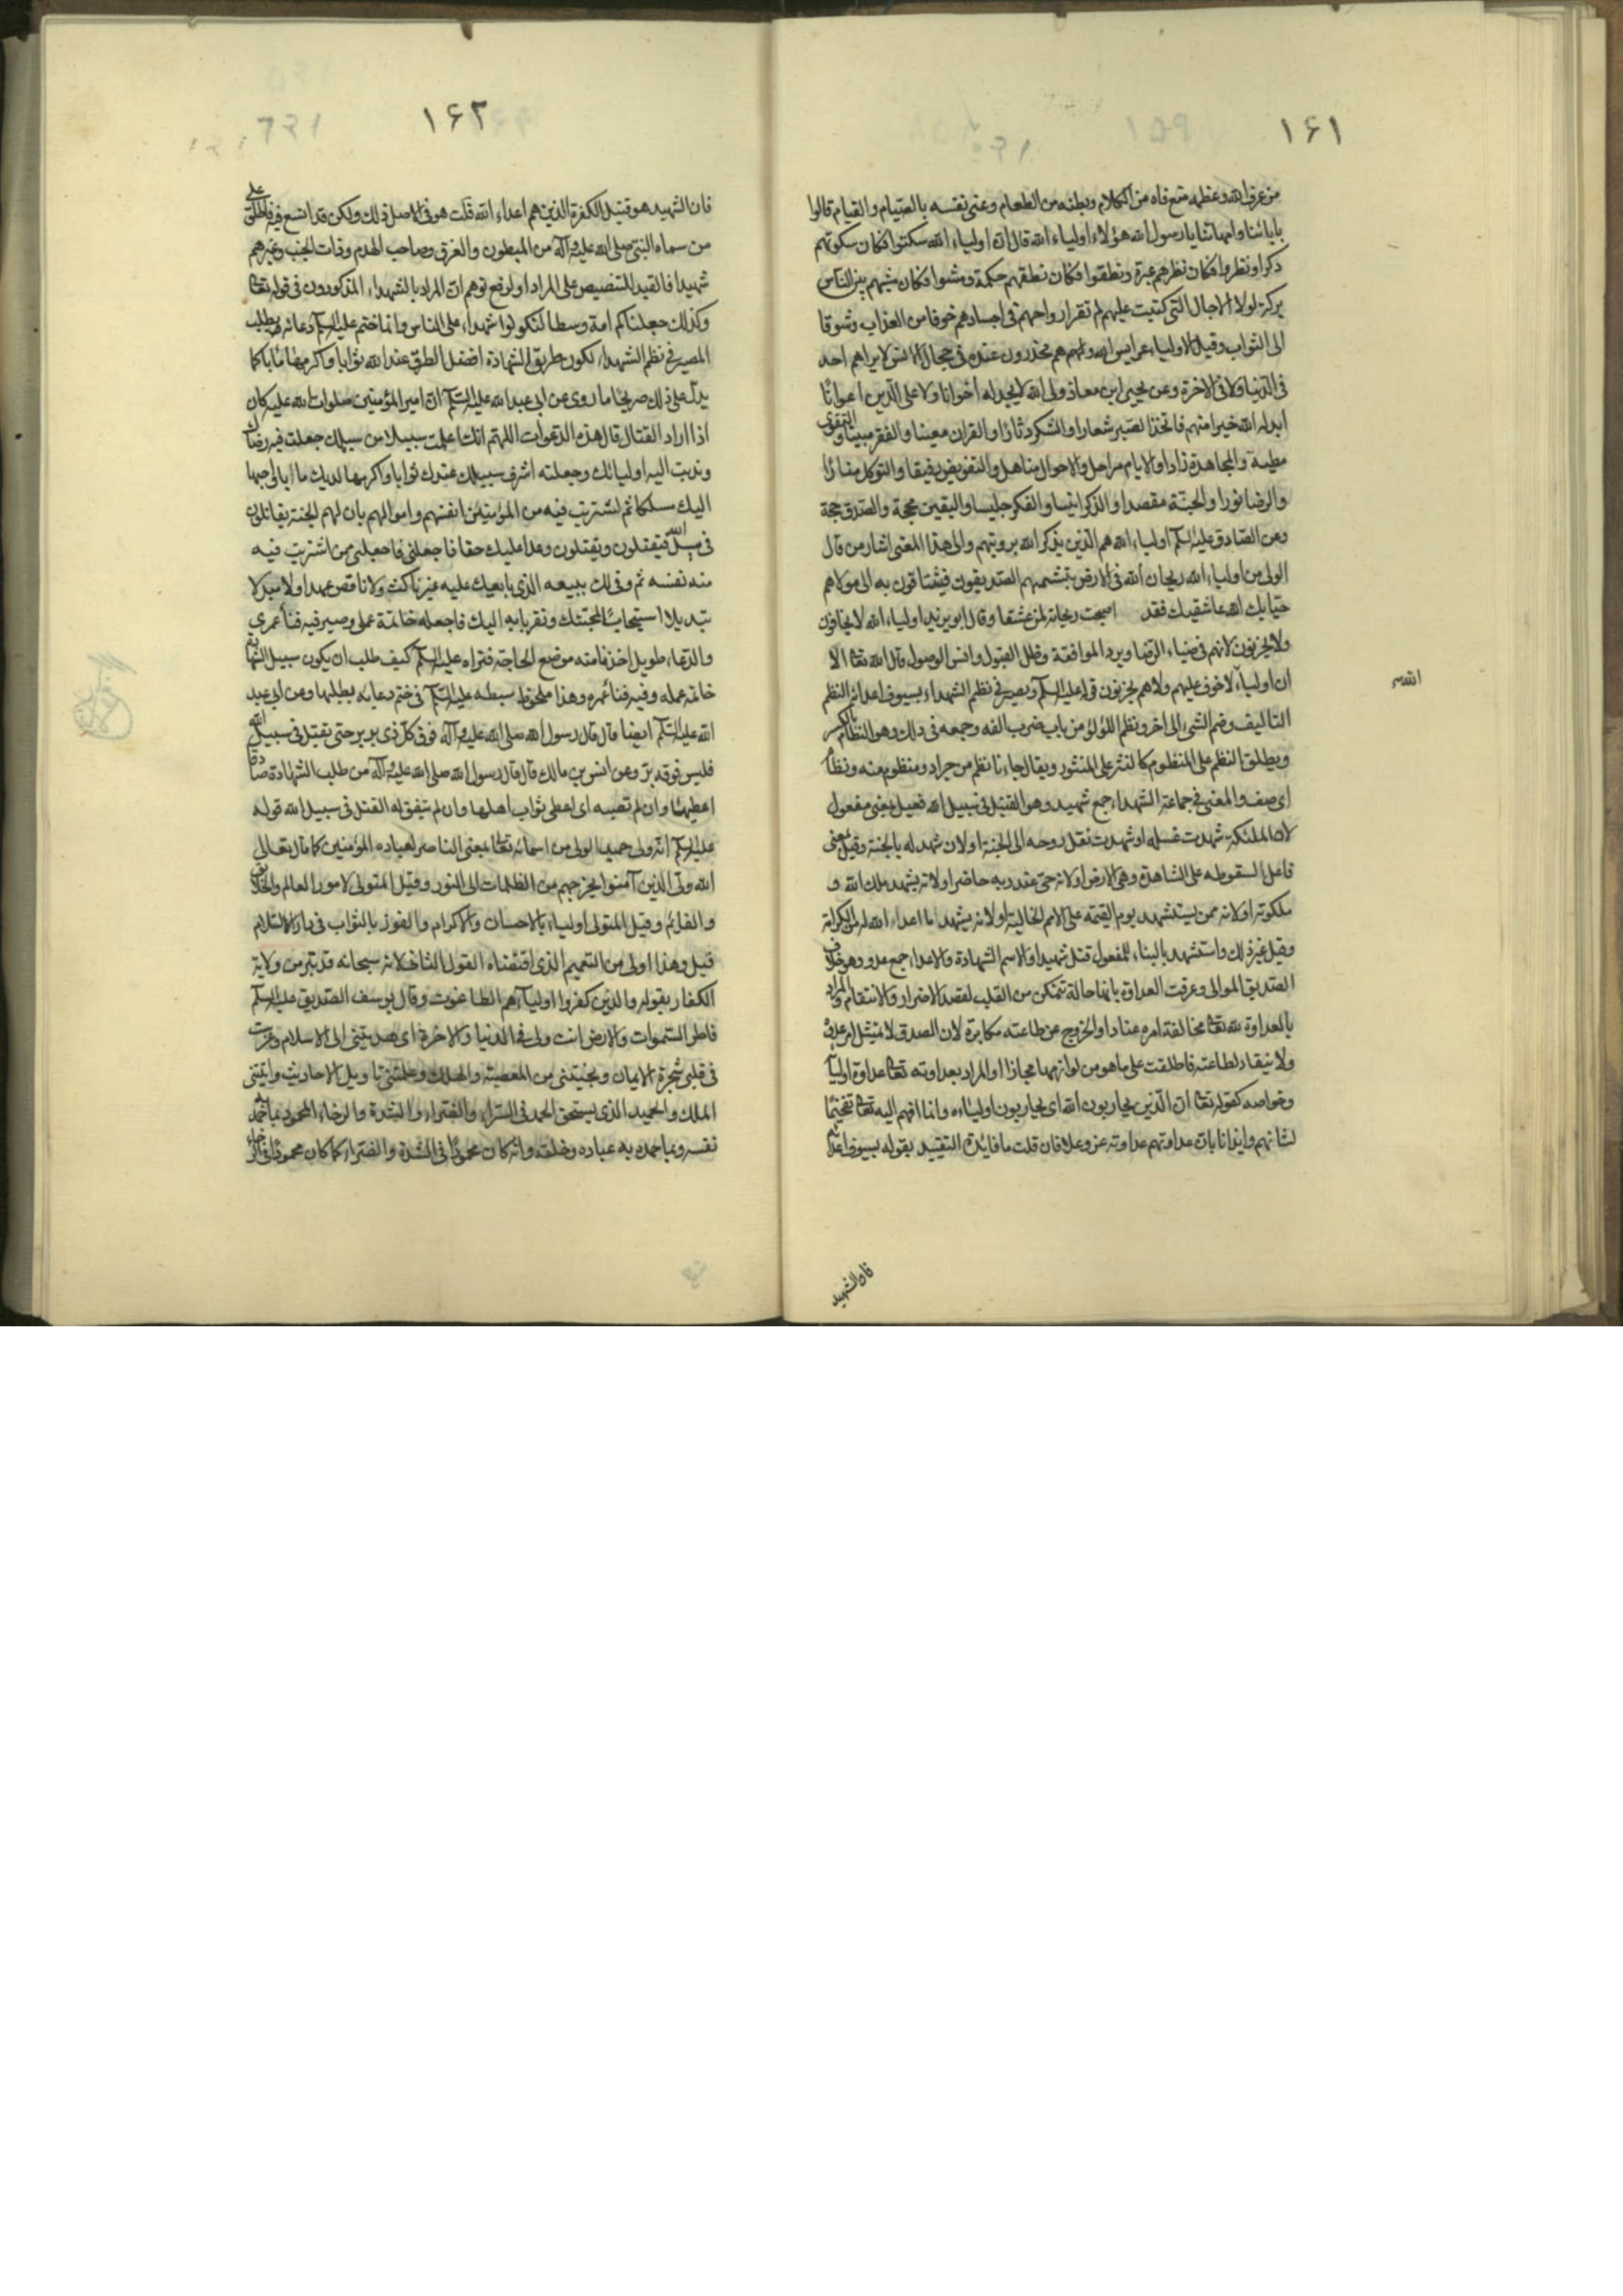 ۱۶۱
من عرف الله وعظمه منع فاه من الكلام وبطنه من الطعام وعنى نفسه بالصيام والقيام قالوا
بابائنا وامهاتنا يا رسول الله هؤلاء اولياء الله قال ان اولياء الله سكتوا فكان سكوتهم
ذكرا ونظروا فكان نظرهم عبرة ونطقوا فكان نطقهم حكمة ومشوا فكان مشيهم بين الناس
بركة لولا الاجال التى كتبت عليهم لم تقر ارواحهم فى اجسادهم خوفا من العذاب وشوقا
الى الثواب وقيل الاولياء عرايس الله ولهم هم مخدرون عنده فى حجال الانس لا يراهم احد
فى الدنيا ولا فى الاخرة وعن يحيى ابن معاذ ولى الله لا يجد له اخوانا ولا على الدين اعوانا
ابدله الله خيرا منهم فاتخذ الصبر شعارا والشكر دثارا والقران معينا والفقر والتقوى
مطية والمجاهدة زادا والايام مراحل والاحوال مناهل والتفويض رفيقا والتوكل منارا
والرضا نورا والجنة مقصدا والذكر انيسا والفكر جليسا واليقين محجة والصدق حجة
وعن الصادق عليه السلم اولياء الله هم الذين يذكر الله برويتهم والى هذا المعنى اشار من قال
الولى من اولياء الله ريحان الله فى الارض يتشممهم الصديقون فيشتاقون به الى مولاهم
عاشقيك فقد اصبحت ريحانة لمن عشقا وقال ابو يزيد اولياء الله لا يخافون
ولا يحزنون لانهم فى ضياء الرضا وبرد الموافقة وظل القبول وانس الوصول قال الله تعا الا
ان اولياء لا خوف عليهم ولا هم يحزنون قوله عليه السلم ويصير فى نظم الشهداء بسيوف اعدائه النظم
الله
التاليف وضم الشىء الى اخر ونظم اللؤلؤ من باب ضرب الفه وجمعه فى ذلك وهو النظام بالكسر
ويطلق النظم على المنظوم كالنثر على المنثور ويقال جاءنا نظم من جراد ومنظوم منه ونظام
اى صف والمعنى فى جماعة الشهداء جمع شهيد وهو القتيل فى سبيل الله فعيل بمعنى مفعول
لان الملئكة شهدت غسله او شهدت نقل روحه الى الجنة او لان شهد له بالجنة وقيل بمعنى
فاعل لسقوطه على الشاهدة وهى الارض او لانه حى عند ربه حاضر او لانه يشهد ملك الله و
ملكوته او لانه ممن يستشهد يوم القيمة على الامم الخالية او لانه يشهد ما اعد الله له من الكرامة
وقيل غير ذلك واستشهد بالبناء للمفعول قتل شهيدا والاسم الشهادة والاعداء جمع عدو وهو خلاف
الصديق الموالى وعرفت العداوة بانها حالة تتمكن من القلب لقصد الاضرار والانتقام والمراد
بالعداوة لله تعا مخالفة امره عنادا والخروج عن طاعته مكابرة لان
ولا ينقاد لطاعته فاطلقت على ما هو من لوازمها مجازا او المراد بعداوته تعا عداوة اوليائه
وخواصه كقوله تعا ان الذين يحاربون الله اى يحاربون اولياءه وانما اليه تعا تفخيما
لشانهم وايذانا بان عداوتهم عداوته عز وعلا فان قلت ما فايدة التقييد بقوله بسيوف اعدائه
فان الشهيد
۱۶۲
فان الشهيد هو قتيل الكفرة الذين هم اعداء الله قلت هو فى الاصل ذلك ولكن قد اتسع فيه فاطلق على
من سماه النبى صلى الله عليه وآله من المبطون والغرق وصاحب الهدم وذات الجنب وغيرهم
شهيدا فالقيد للتنصيص على المراد او لرفع توهم ان المراد بالشهداء المذكورون فى قوله تعا
وكذلك جعلناكم امة وسطا لتكونوا شهداء على الناس وانما ختم عليه السلم دعائه بطلب
المصير فى نظم الشهداء لكون طريق الشهادة افضل الطرق عند الله ثوابا واكرمها مابا كما
يدل على ذلك صريحا ما روى عن ابى عبد الله عليه السلم ان امير المؤمنين صلوات الله عليه كان
اذا اراد القتال قال هذه الدعوات اللهم انك اعلمت سبيلا من سبيلك جعلت فيه رضاك
وندبت اليه اوليائك وجعلته اشرف سبيلك عندك ثوابا واكرمها لديك مابا واحبها
اليك مسلكا ثم اشتريت فيه من المؤمنين انفسهم واموالهم بان لهم الجنة يقاتلون
فى سبيل الله فيقتلون ويقتلون وعدا عليك حقا فاجعلنى فاجعلنى ممن اشتريت فيه
منه نفسه ثم وفى لك ببيعه الذى بايعك عليه غير ناكث ولا ناقض عهدا ولا مبدلا
تبديلا استيجابا لمحبتك وتقربا به اليك فاجعله خاتمة عملى وصير فيه فناء عمرى
والدعاء طويل اخذنا منه موضع الحاجة فتراه عليه السلم كيف طلب ان يكون سبيل الشهادة
خاتمة عمله وفيه فناء عمره وهذا ملحوظ سبطه عليه السلم فى ختم دعايه بطلبها وعن ابى عبد
الله عليه السلم ايضا قال قال رسول الله صلى الله عليه وآله فوق كل ذى بر بر حتى يقتل فى سبيل الله
فليس فوقه بر وعن انس بن مالك قال قال رسول الله صلى الله عليه وآله من طلب الشهادة صادقا
اعطيها وان لم تصبه اى اعطى ثواب اهلها وان لم يتفق له القتل فى سبيل الله قوله
عليه السلم انه ولى حميد الولى من اسمائه تعا بمعنى الناصر لعباده المؤمنين كما قال تعالى
الله ولى الذين آمنوا يخرجهم من الظلمات الى النور وقيل المتولى لامور العالم والخلايق
والقائم وقيل المتولى اولياءه بالاحسان والاكرام والفوز بالثواب فى دار السلام
قيل وهذا اولى من التعميم الذى اقتضاه القول الثانى لانه سبحانه قد تبرء من ولاية
الكفار بقوله والذين كفروا اولياؤهم الطاغوت وقال يوسف الصديق عليه السلم
فاطر السموات والارض انت ولى فى الدنيا والاخرة اى هديتنى الى الاسلام وغرست
فى قلبى شجرة الايمان ونجيتنى من المعصية والهلك وعلمتنى تاويل الاحاديث واتيتنى
الملك والحميد الذى يستحق الحمد فى السراء والضراء والشدة والرخاء المحمود بما حمد به
نفسه وبما حمده به عباده وخلقه وانه كان محمودا فى الشدة والضراء كما كان محمودا فى الرخاء